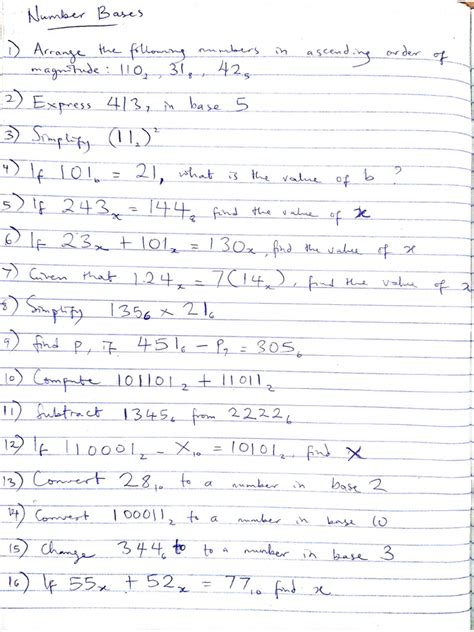 Number Bases
1) Arrange the following numbers in ascending order of
magnitude: 110₂, 31₈, 42₅
2) Express 413₇ in base 5
3) Simplify (11₂)²
4) If 101_b = 21, what is the value of b ?
5) If 243ₓ = 144₈ find the value of x
6) If 23ₓ + 101ₓ = 130ₓ, find the value of x
7) Given that 124ₓ = 7(14ₓ), find the value of x
8) Simplify 135₆ × 21₆
9) find P, if 451₆ - P₇ = 305₆
10) Compute 101101₂ + 11011₂
11) Subtract 1345₆ from 2222₆
12) If 110001₂ - X₁₀ = 10101₂, find X
13) Convert 28₁₀ to a number in base 2
14) Convert 100011₂ to a number in base 10
15) Change 344₆ to to a number in base 3
16) If 55ₓ + 52ₓ = 77₁₀ find x